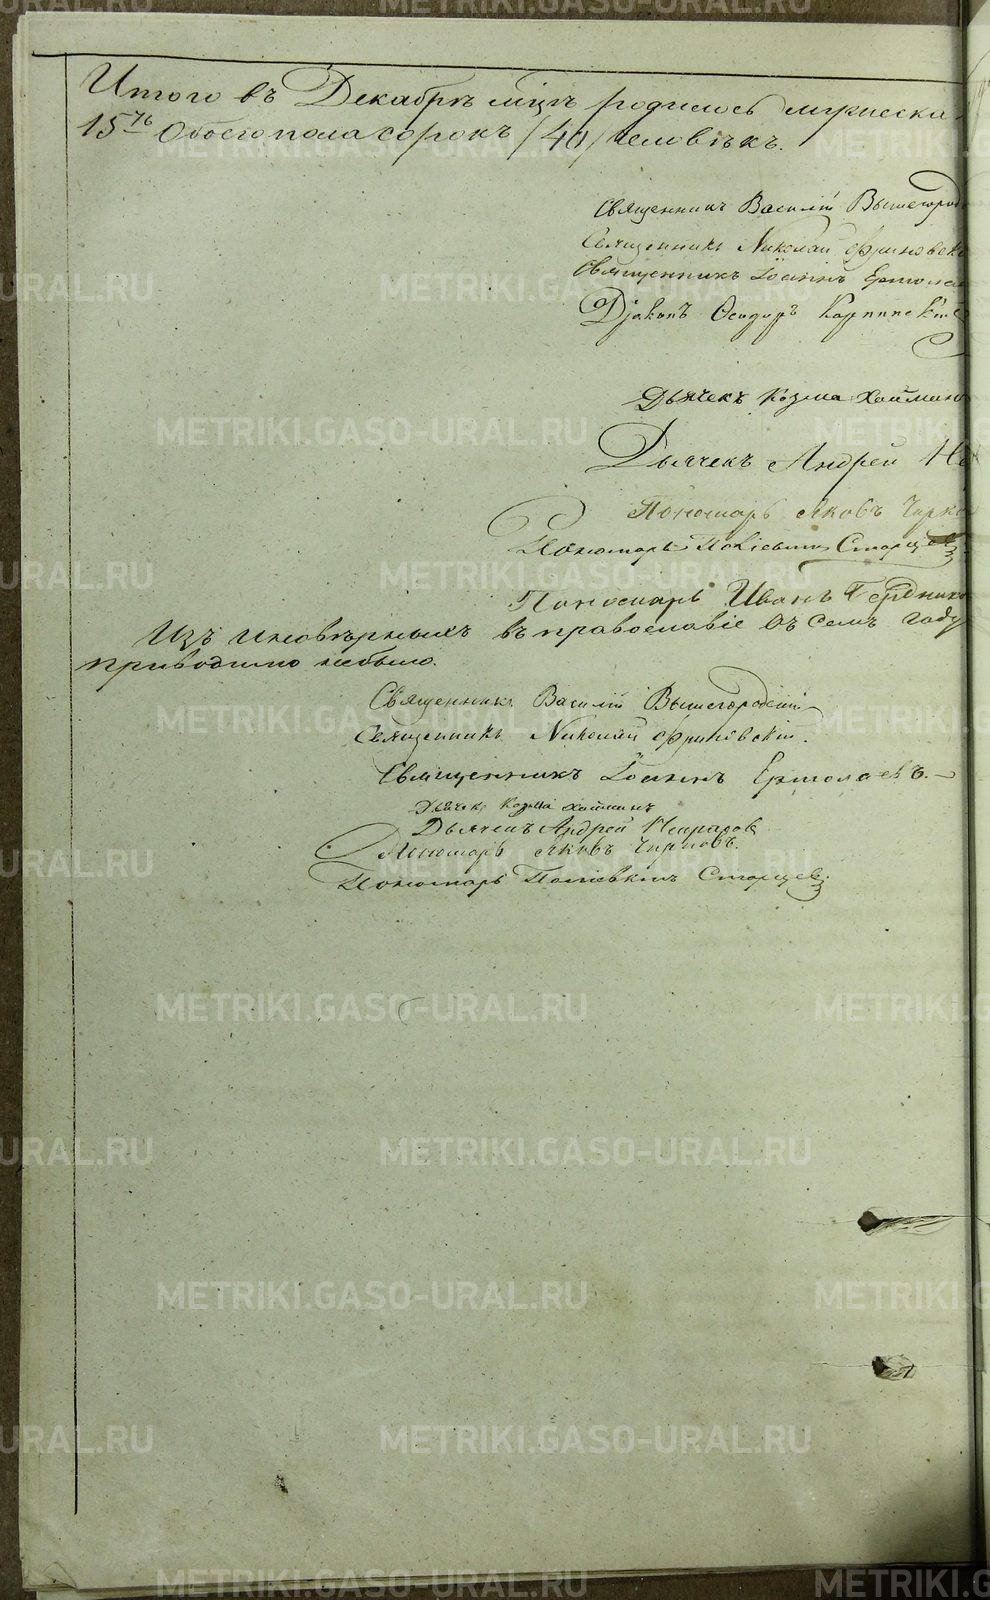 Итого въ Декабрѣ мцѣ родилось мужеска
15ть Обоего пола сорокъ /40/ человѣкъ.
Священникъ Василій Вышегород
Священникъ Николай Фриновск
Священникъ Іоаннъ Ермола
Діаконъ Ѳеодоръ Карпинскій
Дьячекъ Козма Хаймин
Дьячекъ Андрей Не
Пономарь Яковъ Чирко
Пономарь Поліевктъ Старцев
Пономарь Иванъ
Изъ иновѣрныхъ въ православіе въ семъ году
приводимо небыло.
Священникъ Василій Вышегородскій
Священникъ Николай Фриновскій.
Священникъ Іоаннъ Ермолаевъ.
Дьячекъ Козма Хайминъ
Дьячекъ Андрей Некрасов
Пономарь Яковъ Чирковъ.
Пономарь Поліевктъ Старцев
METRIKI.GASO-URAL.RU